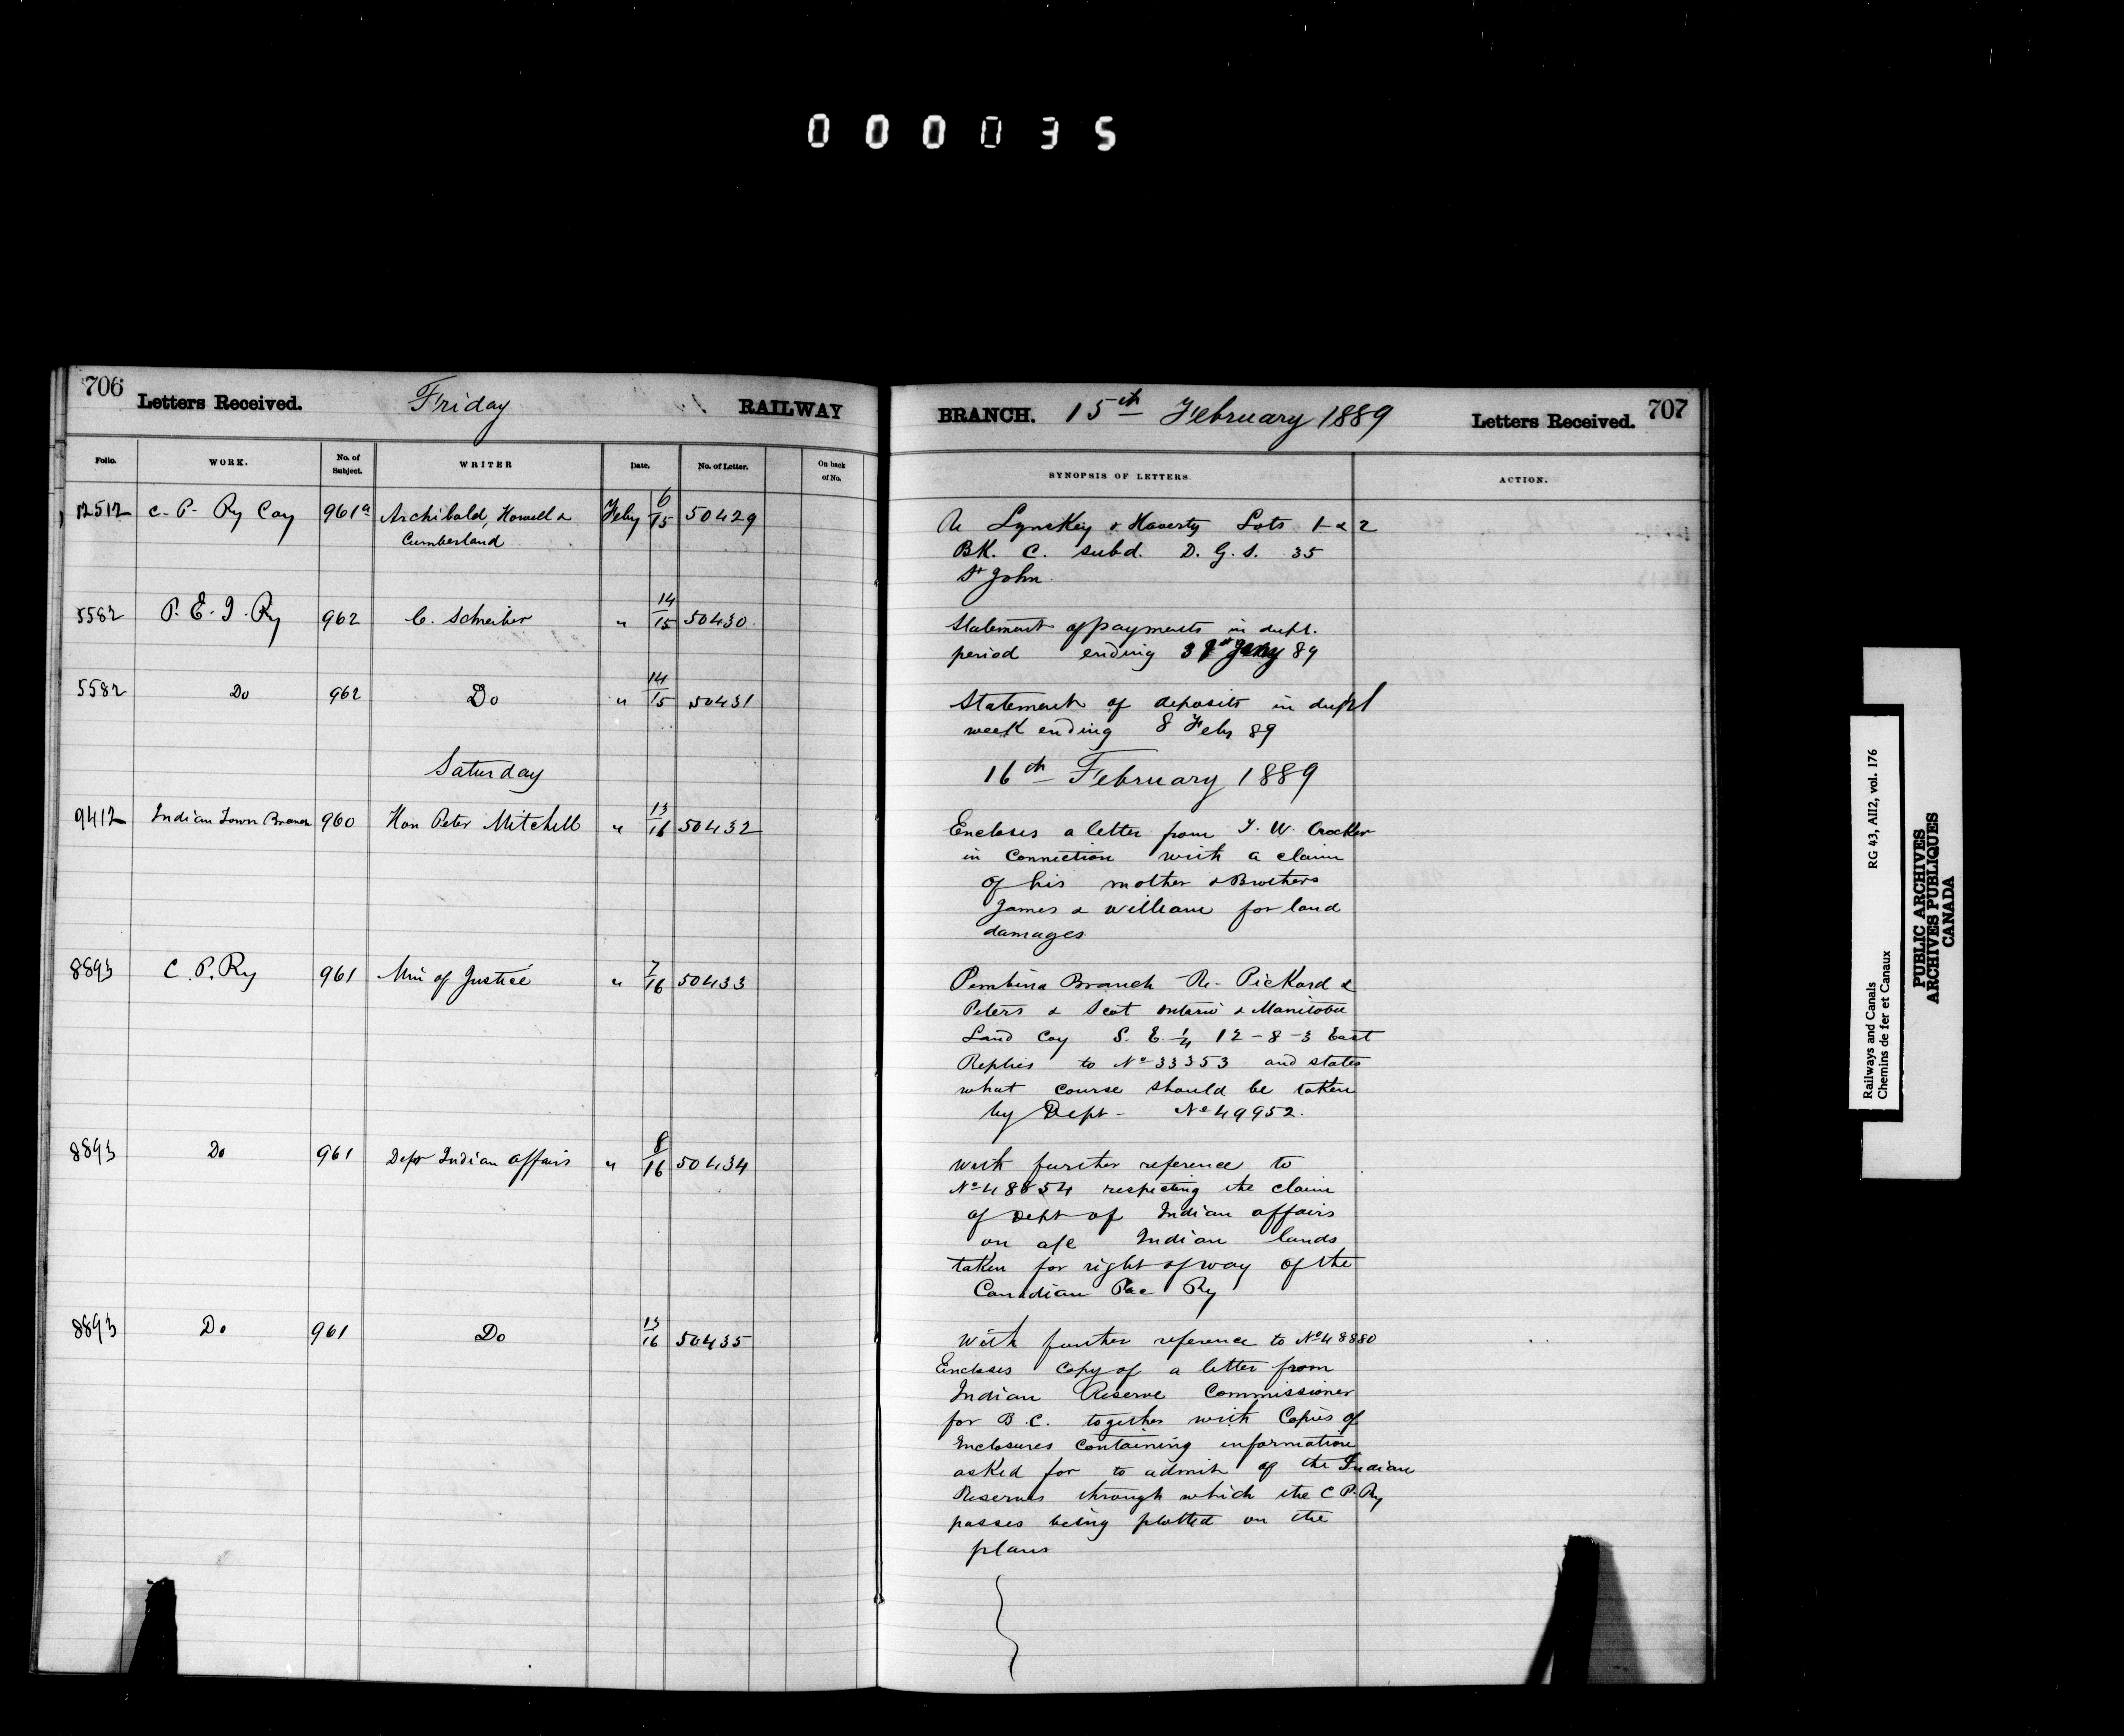 000035
706 Letters Received. Friday RAILWAY
BRANCH. 15th February 1889 Letters Received. 707
Folio. WORK. No. of Subject. WRITER Date. No. of Letter. On back of No.
SYNOPSIS OF LETTERS. ACTION.
12512 C. P. Ry Coy 961a Archibald, Howell & Feby 6/15 50429
Cumberland
Re Lynskey & Haverty Lots 1 & 2
BK. C. subd. D. G. S. 35
St John
5582 P. E. I. Ry 962 C. Schreiber " 14/15 50430
Statement of payments in dupl.
period ending 31st Jany 89
5582 Do 962 Do " 14/15 50431
Statement of deposits in dupl
week ending 8 Feby 89
Saturday
16th February 1889
9412 Indian Town Branch 960 Hon Peter Mitchell " 13/16 50432
Encloses a letter from T. W. Crocker
in connection with a claim
of his mother & Brothers
James & William for land
damages
8893 C. P. Ry 961 Min of Justice " 7/16 50433
Pembina Branch Re- Pickard &
Peters & Scot Ontario & Manitoba
Land Coy S. E. 1/4 12-8-3 East
Replies to No 33353 and states
what course should be taken
by Dept - No 49952.
8893 Do 961 Dept Indian Affairs " 8/16 50434
With further reference to
No 48854 respecting the claim
of Dept of Indian affairs
on a/c Indian lands
taken for right of way of the
Canadian Pac Ry
8893 Do 961 Do 13/16 50435
With further reference to No 48880
Encloses copy of a letter from
Indian Reserve Commissioner
for B.C. together with Copies of
Enclosures containing information
asked for to admit of the Indian
Reserves through which the C P. Ry
passes being plotted on the
plans
Railways and Canals RG 43, AII2, vol. 176
Chemins de fer et Canaux
PUBLIC ARCHIVES
ARCHIVES PUBLIQUES
CANADA